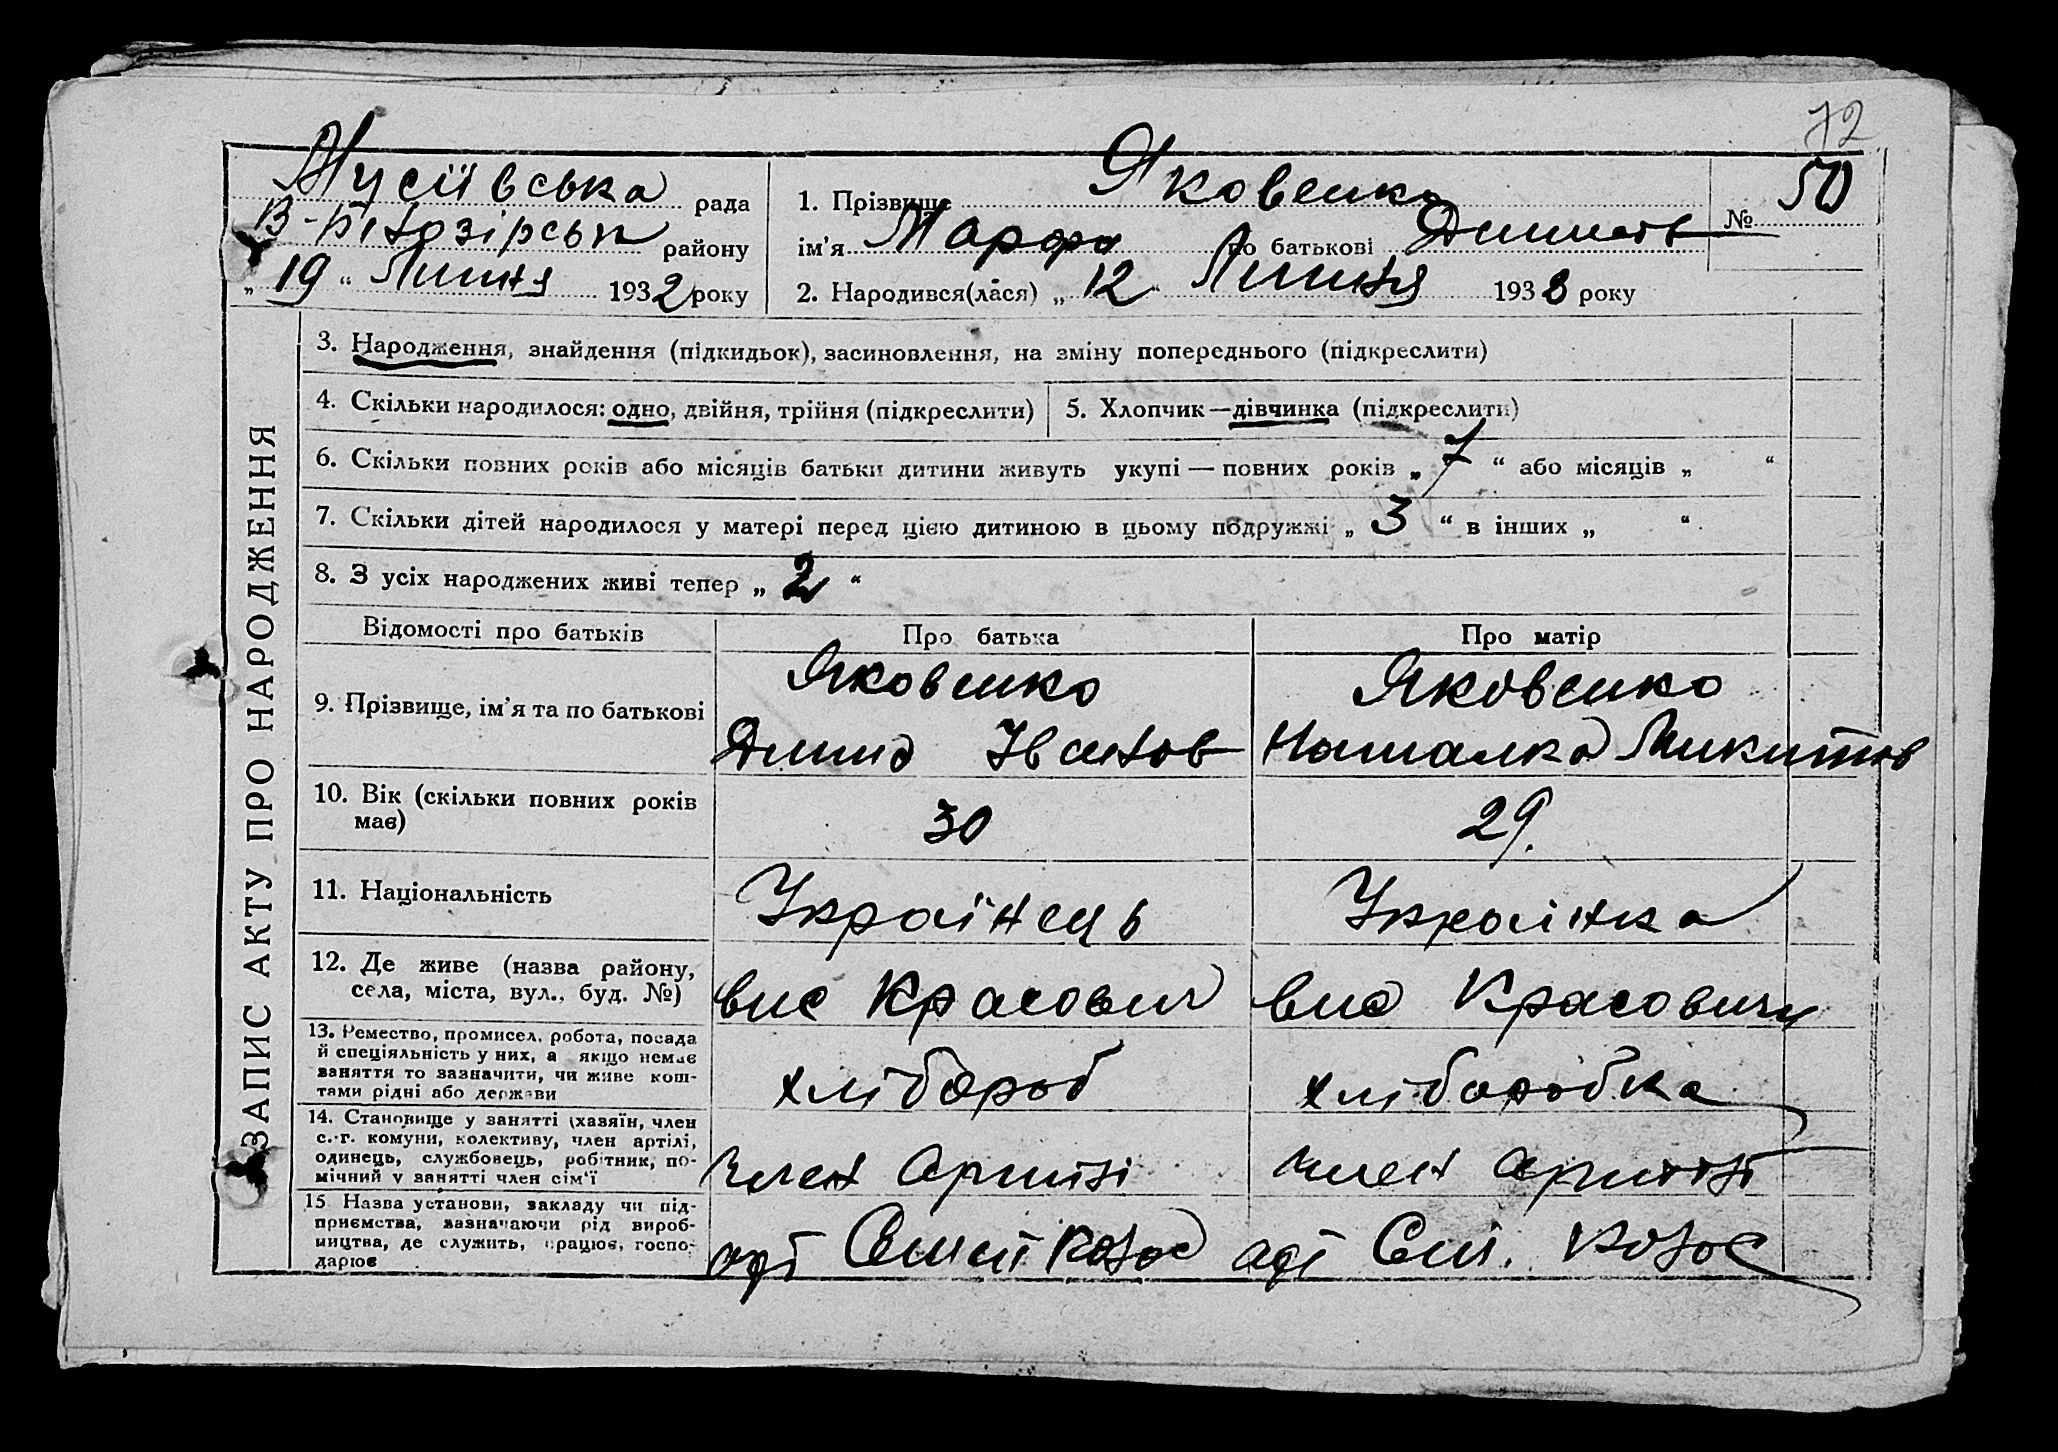 72
Мусіївська рада
В-Білозірськ району
„ 19 “ Липня 1932 року
1. Прізвище Яковенко
ім’я Марфа по батькові
№ 50
2. Народився(лася) „ 12 “ Липня 193 року
ЗАПИС АКТУ ПРО НАРОДЖЕННЯ
3. Народження, знайдення (підкидьок), засиновлення, на зміну попереднього (підкреслити)
4. Скільки народилося: одно, двійня, трійня (підкреслити)
5. Хлопчик—дівчинка (підкреслити)
6. Скільки повних років або місяців батьки дитини живуть укупі — повних років „ 7 “ або місяців „ “
7. Скільки дітей народилося у матері перед цією дитиною в цьому подружжі „ 3 “ в інших „ “
8. З усіх народжених живі тепер „ 2 “
Відомості про батьків
Про батька
Про матір
9. Прізвище, ім’я та по батькові
Яковенко
Іванов
Яковенко
Наталка Микитов
10. Вік (скільки повних років
має)
30
29.
11. Національність
Українець
Українка
12. Де живе (назва району,
села, міста, вул., буд. №)
Красович
Красовичи
13. Ремество, промисел, робота, посада
й спеціяльність у них, а якщо немає
заняття то зазначити, чи живе кош-
тами рідні або держави
хлібороб
хлібаробка
14. Становище у занятті (хазяїн, член
с.-г. комуни, колективу, член артілі,
одинець, службовець, робітник, по-
мічний у занятті член сім’ї
член артілі
член артілі
15 Назва установи, закладу чи під-
приємства, зазначаючи рід вироб-
ництва, де служить, працює, госпо-
дарює